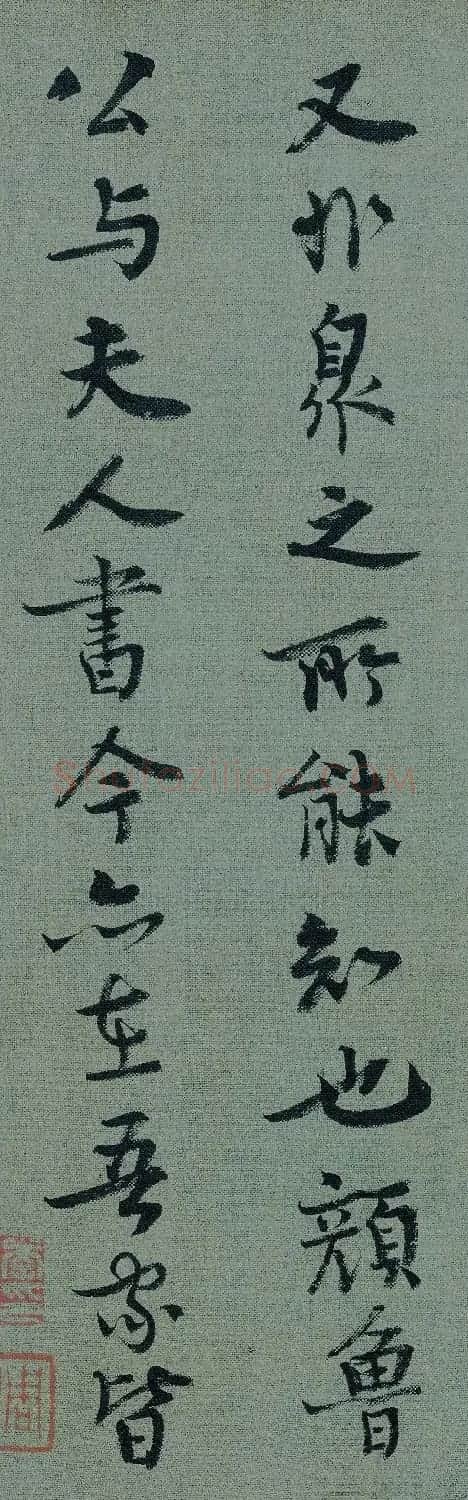 又非之所能知也顏魯
公与夫人書今亦在吾家皆
shufaziliao.com